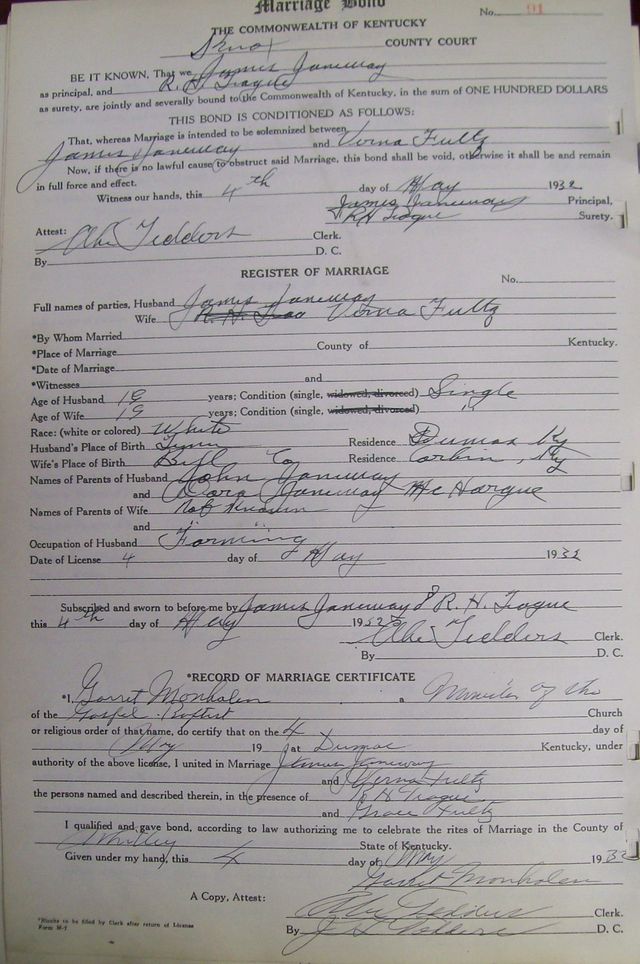 Marriage Bond
No. 91
THE COMMONWEALTH OF KENTUCKY
Knox COUNTY COURT
BE IT KNOWN, That we James Janeway
as principal, and R. H. Teague
as surety, are jointly and severally bound to the Commonwealth of Kentucky, in the sum of ONE HUNDRED DOLLARS
THIS BOND IS CONDITIONED AS FOLLOWS:
That, whereas Marriage is intended to be solemnized between
James Janeway and Verna Fultz
Now, if there is no lawful cause to obstruct said Marriage, this bond shall be void, otherwise it shall be and remain
in full force and effect.
Witness our hands, this 4th day of May 1932
James Janeway Principal,
R H Teague Surety.
Attest: Tedders Clerk.
By D. C.
REGISTER OF MARRIAGE
No.
Full names of parties, Husband James Janeway
Wife R. H. Verna Fultz
*By Whom Married
*Place of Marriage County of Kentucky.
*Date of Marriage
*Witnesses and
Age of Husband 19 years; Condition (single, widowed, divorced) Single
Age of Wife 19 years; Condition (single, widowed, divorced) "
Race: (white or colored) White
Husband's Place of Birth Tenn Residence Ky
Wife's Place of Birth Bell Co Residence Corbin, Ky
Names of Parents of Husband John Janeway
and Janeway McHargue
Names of Parents of Wife Not Known
and "
Occupation of Husband Farming
Date of License 4 day of May 1932
Subscribed and sworn to before me by James Janeway & R. H. Teague
this 4th day of May 193
Tedders Clerk.
By D. C.
*RECORD OF MARRIAGE CERTIFICATE
*I, Monholen a Minister of the
of the Gospel Baptist Church
or religious order of that name, do certify that on the 4 day of
May 19 at Kentucky, under
authority of the above license, I united in Marriage James Janeway
and Verna Fultz
the persons named and described therein, in the presence of R H Teague
and Grace Fultz
I qualified and gave bond, according to law authorizing me to celebrate the rites of Marriage in the County of
Whitley State of Kentucky.
Given under my hand, this 4 day of May 1932
Monholen
A Copy, Attest: Tedders Clerk.
By D. C.
*Blanks to be filed by Clerk after return of License
Form M-1